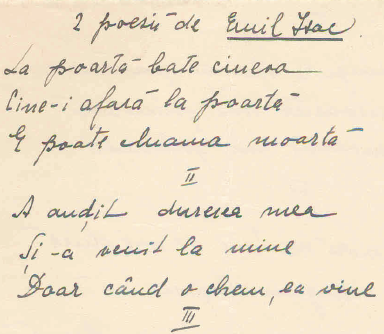 2 poesii de Emil Isac
La poartă bate cineva
Cine-i afară la poartă
E poate Mama moartă
II
A auzit durerea mea
Și-a venit la mine
Doar când o chem, ea vine
III